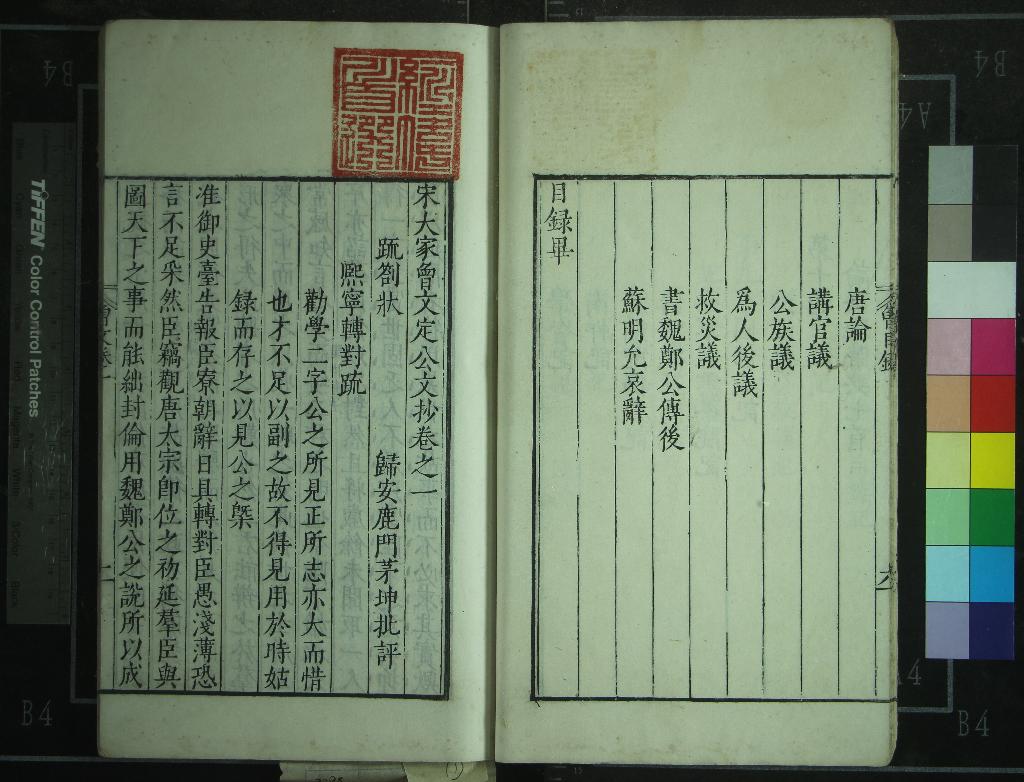 唐論
講官議
公族議
為人後議
救災議
書魏鄭公傳後
蘇明允哀辭
目録畢
六
宋大家曾文定公文抄卷之一
䟽劄狀 歸安鹿門茅坤批評
熙寧轉對䟽
勸學二字公之所見正所志亦大而惜
也才不足以副之故不得見用於時姑
録而存之以見公之槩
准御史臺告報臣寮朝辭日具轉對臣愚淺薄恐
言不足采然臣竊觀唐太宗卽位之初延羣臣與
圖天下之事而能絀封倫用魏鄭公之說所以成
TIFFEN Color Control Patches
B4
B4
A4
A4
B4
B4